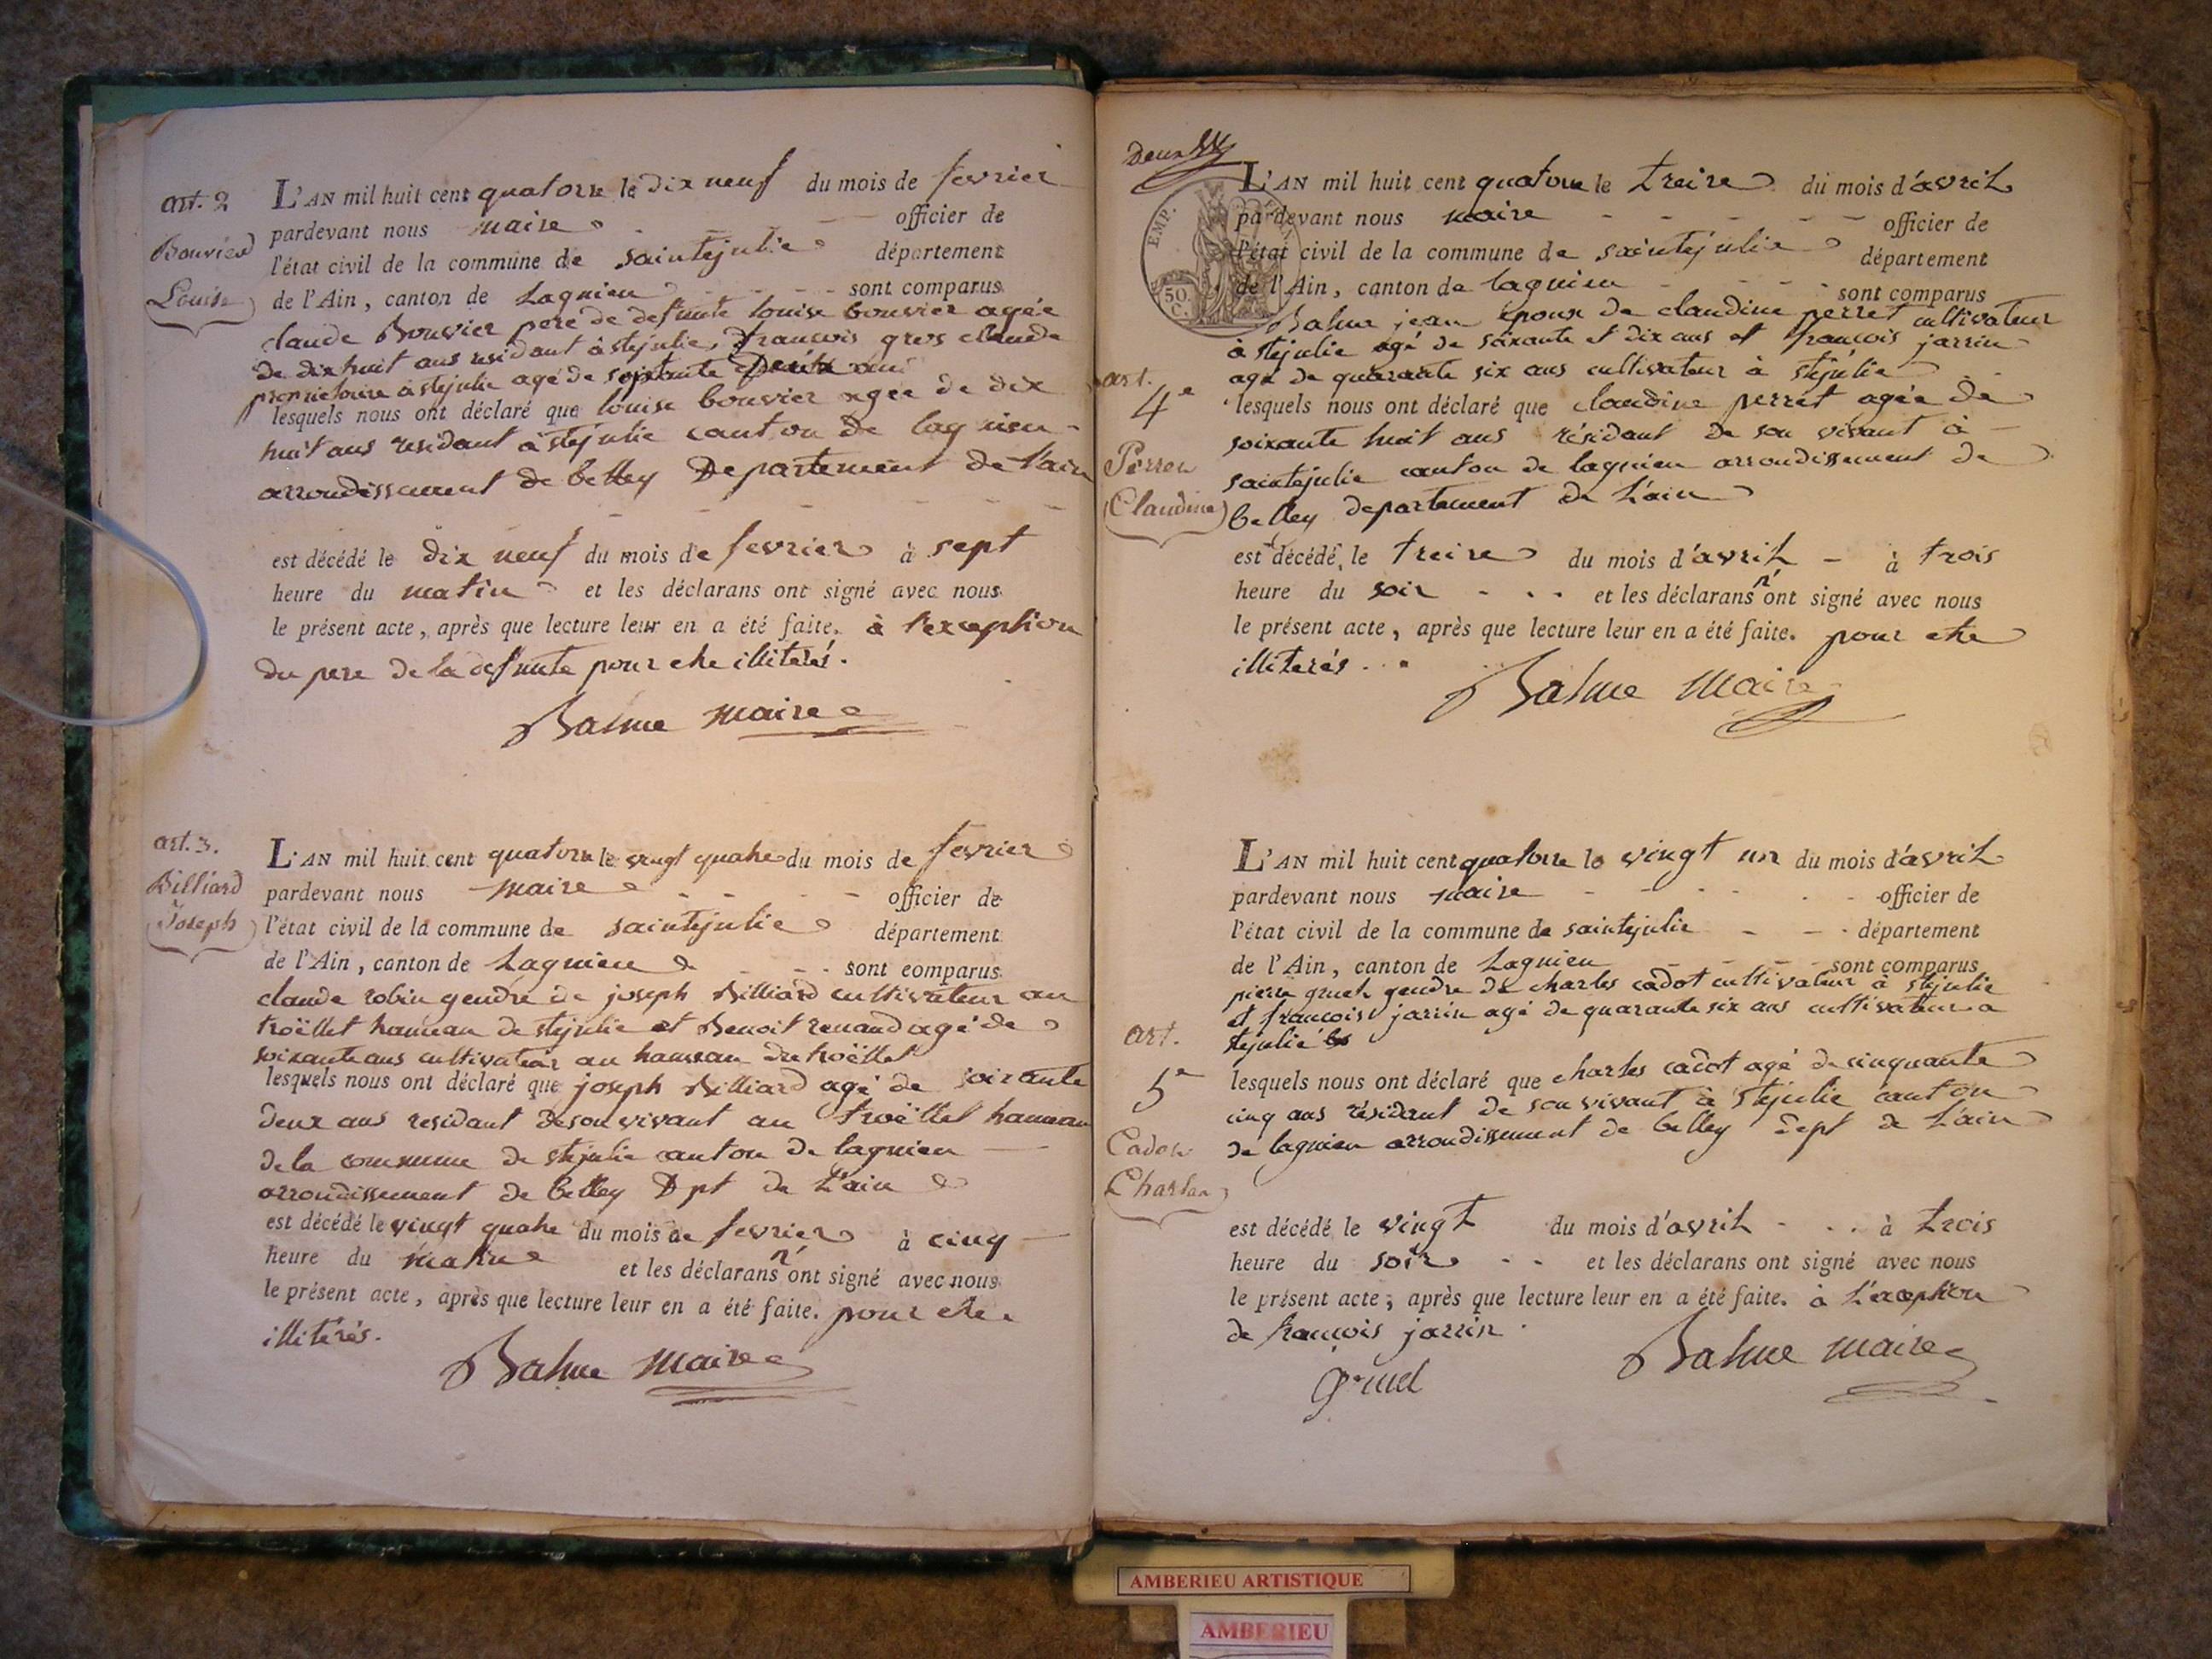 art. 2
Bouvier
Louise
L'AN mil huit cent quatorze le dix neuf du mois de fevrier
pardevant nous maire officier de
l'état civil de la commune de saintejulie département
de l'Ain, canton de Lagnieu sont comparus
claude Bouvier pere de defunte louise bouvier agée
de dix huit ans residant à stejulie, francois gros claude
proprietaire à stejulie agé de soixante ans
lesquels nous ont déclaré que louise bouvier agée de dix
huit ans residant à stejulie canton de lagnieu
arrondissement de belley Departement de l'ain
est décédé le dix neuf du mois de fevrier à sept
heure du matin et les déclarans ont signé avec nous
le présent acte, après que lecture leur en a été faite. à l'exception
du pere de la defunte pour etre illiterés.
Balme maire
art. 3.
Billiard
Joseph
L'AN mil huit cent quatorze le vingt quatre du mois de fevrier
pardevant nous maire officier de
l'état civil de la commune de saintejulie département
de l'Ain, canton de Lagnieu sont comparus
claude robin gendre de joseph Billiard cultivateur au
troëllet hameau de stejulie et Benoit renaud agé de
soixante ans cultivateur au hameau du troëllet
lesquels nous ont déclaré que joseph Billiard agé de soixante
deux ans residant de son vivant au troëllet hameau
de la commune de stejulie canton de lagnieu
arrondissement de belley Dpt de L'ain
est décédé le vingt quatre du mois de fevrier à cinq
heure du matin et les déclarans n'ont signé avec nous
le présent acte, après que lecture leur en a été faite. pour etre
illitérés.
Balme maire
Deux
EMP.
50
C.
L'AN mil huit cent quatorze le treize du mois d'avril
pardevant nous maire officier de
l'état civil de la commune de saintejulie département
de l'Ain, canton de lagnieu sont comparus
Balme jean époux de claudine perret cultivateur
à stejulie agé de soixante et dix ans et francois jarrin
agé de quarante six ans cultivateur à stejulie
art.
4e
Perret
Claudine
lesquels nous ont déclaré que claudine perret agée de
soixante huit ans résidant de son vivant à
saintejulie canton de lagnieu arrondissement de
belley departement de L'ain
est décédé le treize du mois d'avril à trois
heure du soir et les déclarans n'ont signé avec nous
le présent acte, après que lecture leur en a été faite. pour etre
illiterés.
Balme Maire
L'AN mil huit cent quatorze le vingt un du mois d'avril
pardevant nous maire officier de
l'état civil de la commune de saintejulie département
de l'Ain, canton de Lagnieu sont comparus
pierre gruel gendre de charles cadot cultivateur à stejulie
et francois jarrin agé de quarante six ans cultivateur a
stejulie
art.
5e
Cadot
Charles
lesquels nous ont déclaré que charles cadot agé de cinquante
cinq ans résidant de son vivant à Stejulie canton
de lagnieu arrondissement de belley dept de L'ain
est décédé le vingt du mois d'avril à trois
heure du soir et les déclarans ont signé avec nous
le présent acte, après que lecture leur en a été faite. à L'exception
de francois jarrin.
Gruel
Balme maire
AMBERIEU ARTISTIQUE
AMBERIEU